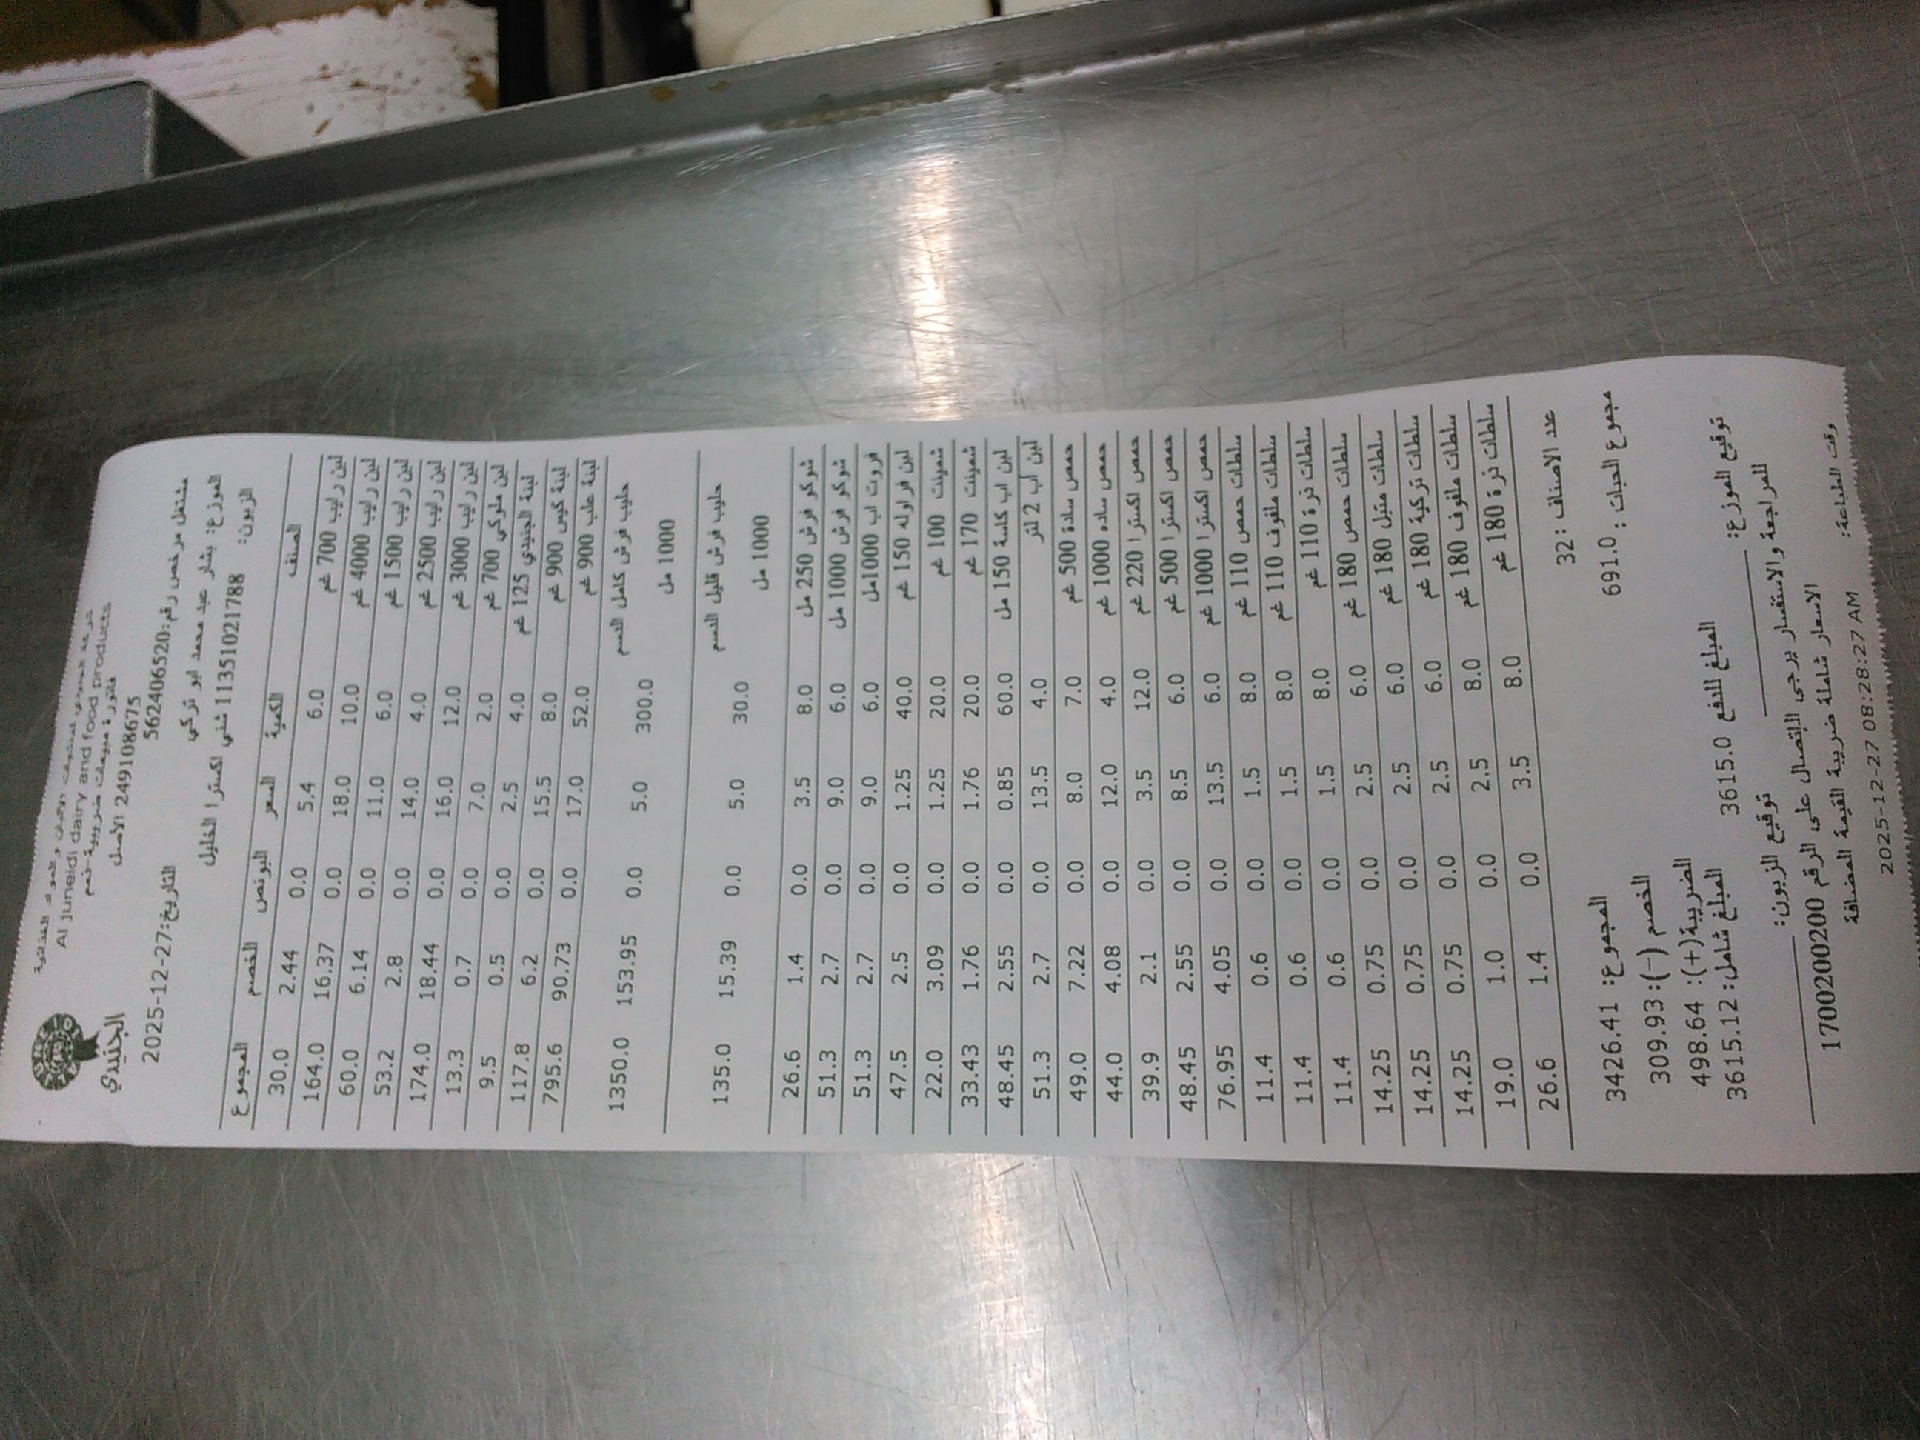 Al Juneidi dairy and food products
فاتورة مبيعات ضريبية-خصم
الجنيدي
249108675 الاصل
مشتغل مرخص رقم:562406520
التاريخ:27-12-2025
الموزع: بشار عبد محمد ابو تركي
الزبون: 11351021788 شني اكسترا الخليل
الصنف الكمية السعر البونص الخصم المجموع
لبن رايب 700 غم 6.0 5.4 0.0 2.44 30.0
لبن رايب 4000 غم 10.0 18.0 0.0 16.37 164.0
لبن رايب 1500 غم 6.0 11.0 0.0 6.14 60.0
لبن رايب 2500 غم 4.0 14.0 0.0 2.8 53.2
لبن رايب 3000 غم 12.0 16.0 0.0 18.44 174.0
لبن ملوكي 700 غم 2.0 7.0 0.0 0.7 13.3
لبنة الجنيدي 125 غم 4.0 2.5 0.0 0.5 9.5
لبنة كيس 900 غم 8.0 15.5 0.0 6.2 117.8
لبنة علب 900 غم 52.0 17.0 0.0 90.73 795.6
حليب فرش كامل الدسم 300.0 5.0 0.0 153.95 1350.0
1000 مل
حليب فرش قليل الدسم 30.0 5.0 0.0 15.39 135.0
1000 مل
شوكو فرش 250 مل 8.0 3.5 0.0 1.4 26.6
شوكو فرش 1000 مل 6.0 9.0 0.0 2.7 51.3
فروت اب 1000مل 6.0 9.0 0.0 2.7 51.3
لبن فراوله 150 غم 40.0 1.25 0.0 2.5 47.5
شمينت 100 غم 20.0 1.25 0.0 3.09 22.0
شمينت 170 غم 20.0 1.76 0.0 1.76 33.43
لبن اب كاسة 150 مل 60.0 0.85 0.0 2.55 48.45
لبن اب 2 لتر 4.0 13.5 0.0 2.7 51.3
حمص سادة 500 غم 7.0 8.0 0.0 7.22 49.0
حمص ساده 1000 غم 4.0 12.0 0.0 4.08 44.0
حمص اكسترا 220 غم 12.0 3.5 0.0 2.1 39.9
حمص اكسترا 500 غم 6.0 8.5 0.0 2.55 48.45
حمص اكسترا 1000 غم 6.0 13.5 0.0 4.05 76.95
سلطات حمص 110 غم 8.0 1.5 0.0 0.6 11.4
سلطات ملفوف 110 غم 8.0 1.5 0.0 0.6 11.4
سلطات ذرة 110 غم 8.0 1.5 0.0 0.6 11.4
سلطات حمص 180 غم 6.0 2.5 0.0 0.75 14.25
سلطات متبل 180 غم 6.0 2.5 0.0 0.75 14.25
سلطات تركية 180 غم 6.0 2.5 0.0 0.75 14.25
سلطات ملفوف 180 غم 8.0 2.5 0.0 1.0 19.0
سلطات ذرة 180 غم 8.0 3.5 0.0 1.4 26.6
عدد الاصناف :32
مجموع الحبات : 691.0 المجموع: 3426.41
الخصم (-): 309.93
الضريبية(+): 498.64
المبلغ للدفع 3615.0 المبلغ شامل: 3615.12
توقيع الموزع: توقيع الزبون:
للمراجعة والاستفسار يرجى الاتصال على الرقم 1700200200
الاسعار شاملة ضريبة القيمة المضافة
وقت الطباعة: 2025-12-27 08:28:27 AM